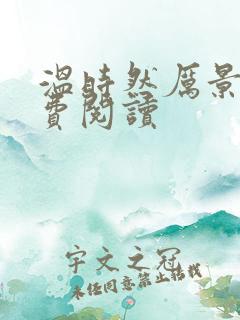 温時然厲景
費閱讀
宇文之冠
未經同意禁止搭載